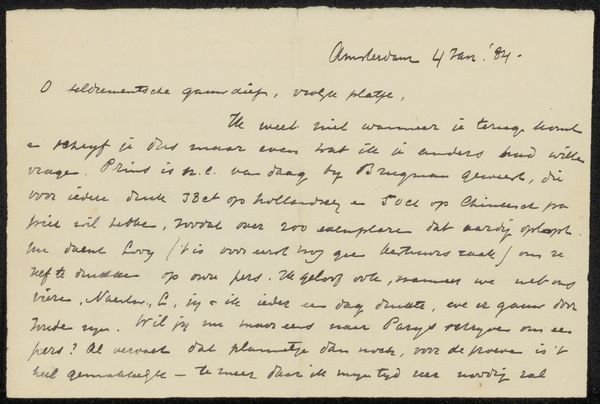 Amsterdam 4 Jan. '84.
O seldrementsche gauwdief, vrolijk platje,
Ik weet niet wanneer je terug komt
& schrijf je dus maar even wat ik je anders had willen
vragen. Prins is n.l. van daag bij Brugman geweest, die
voor iedere druk 3 8ct op hollandsch & 50ct op Chineesch pa
pier wil hebben, zoodat over 200 exemplaren dat aardig oploopt.
Nu dacht Looy ('t is voor eerst nog geen bestuurs zaak) om ze
zelf te drukken op onze pers. Ik geloof ook, wanneer we met ons
vieren, L., jij & ik ieder een dag drukte, we er gauw door
zouden zijn. Wil jij nu maar eens naar Parijs schrijven om een
pers? Al vervalt dat plannetje dan noch, voor de proeve is 't
heel gemakkelijk — te meer daar ik mijn tijd zeer noodig zal